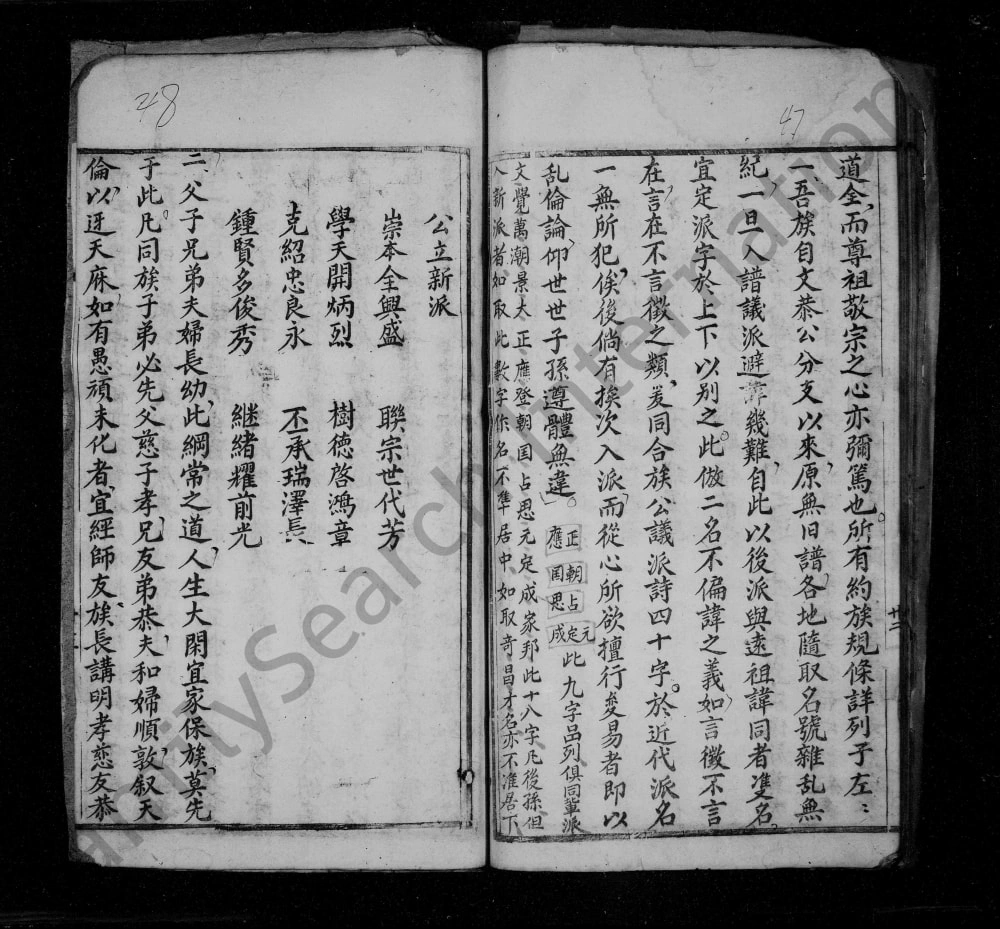 47
道全而尊祖敬宗之心亦彌篤也所有約族規條詳列于左：
一吾族自文恭公分支以來原無旧譜各地隨取名號雜乱無
紀一旦入譜議派避諱幾難自此以後派與遠祖諱同者隻名
宜定派字於上下以别之此倣二名不偏諱之義如言徵不言
在言在不言徵之類爰同合族公議派詩四十字於近代派名
一無所犯俟後倘有挨次入派而從心所欲擅行变易者即以
乱倫論仰世世子孫遵體無違
正朝占元定
應国思成
此九字品列俱同輩派
文覺萬潮景大正應登朝国占思元定成家邦此十八字凡後孫但
入新派者如取此數字作名不準居中如取奇昌才名亦不准居下
廿二
48
公立新派
崇本全興盛 聯宗世代芳
學天開炳烈 樹德啓鴻章
克紹忠良永 丕承瑞澤長
鍾賢多俊秀 継緒耀前光
二父子兄弟夫婦長幼此綱常之道人生大閑宜家保族莫先
于此凡同族子弟必先父慈子孝兄友弟恭夫和婦順敦叙天
倫以迓天庥如有愚頑未化者宜經師友族長講明孝慈友恭
FamilySearch International